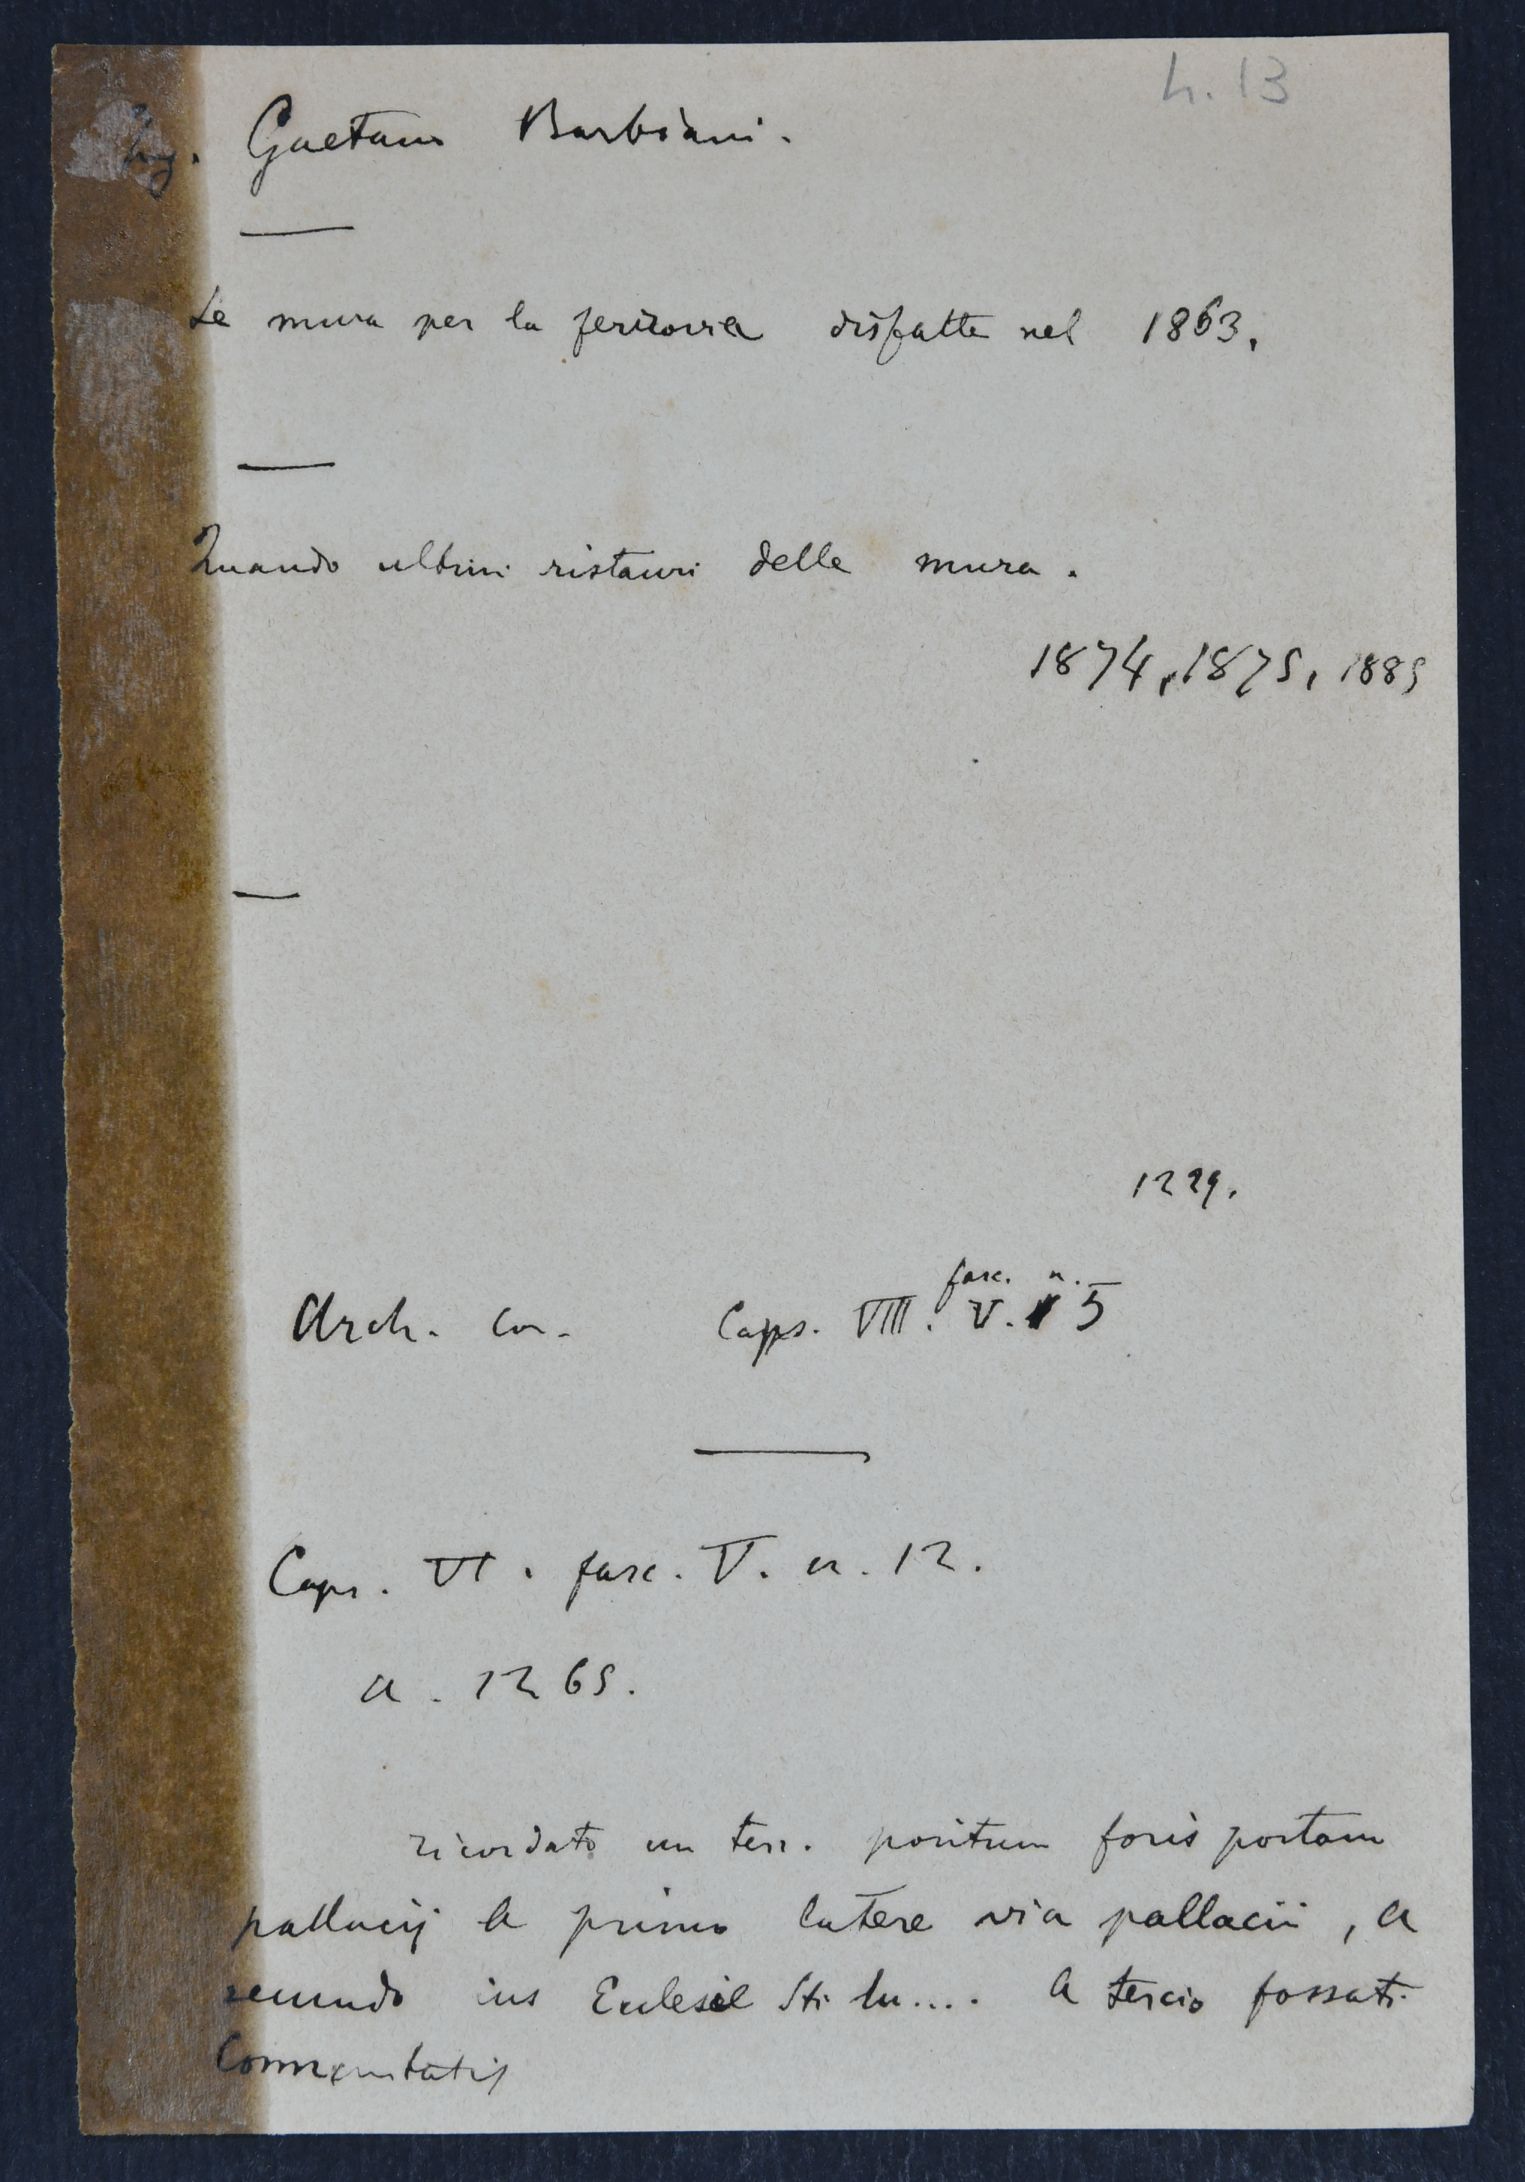 h. 13
Ing. Gaetano Barbiani.
Le mura per la ferrovia disfatte nel 1863.
Quando ultimi ristauri delle mura.
1874, 1875, 1885
1229.
fasc. n.
Arch. com. Caps. VIII. V. 5
Caps. VI. fasc. V. n. 12.
a. 1265.
ricordato un terr. positum foris portam
pallacij a primo latere via pallacii, a
secundo ius Eclesie Sti .... a tercio fossati
Communitatis